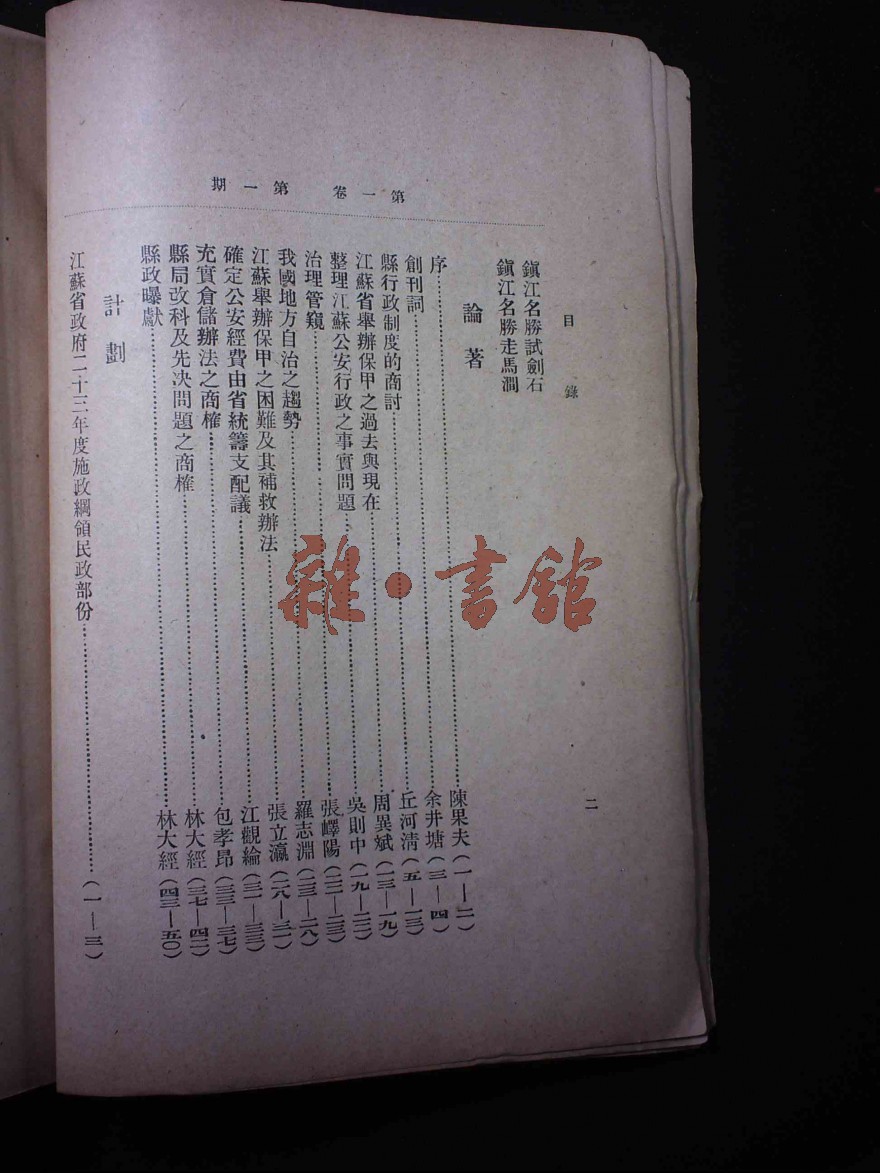 第一卷 第一期
目錄 二
鎭江名勝試劍石
鎭江名勝走馬澗
論著
序……陳果夫(一—二)
創刊詞……余井塘(三—四)
縣行政制度的商討……丘河清(五—一三)
江蘇省舉辦保甲之過去與現在……周異斌(一三—一九)
整理江蘇公安行政之事實問題……吳則中(一九—二二)
治理管窺……張嶧陽(二二—二三)
我國地方自治之趨勢……羅志淵(二三—二八)
江蘇舉辦保甲之困難及其補救辦法……張立瀛(二八—三一)
確定公安經費由省統籌支配議……江觀綸(三一—三三)
充實倉儲辦法之商榷……包孝昂(三三—三七)
縣局改科及先决問題之商榷……林大經(三七—四二)
縣政曝獻……林大經(四三—五〇)
計劃
江蘇省政府二十三年度施政綱領民政部份……(一—三)
雜·書館